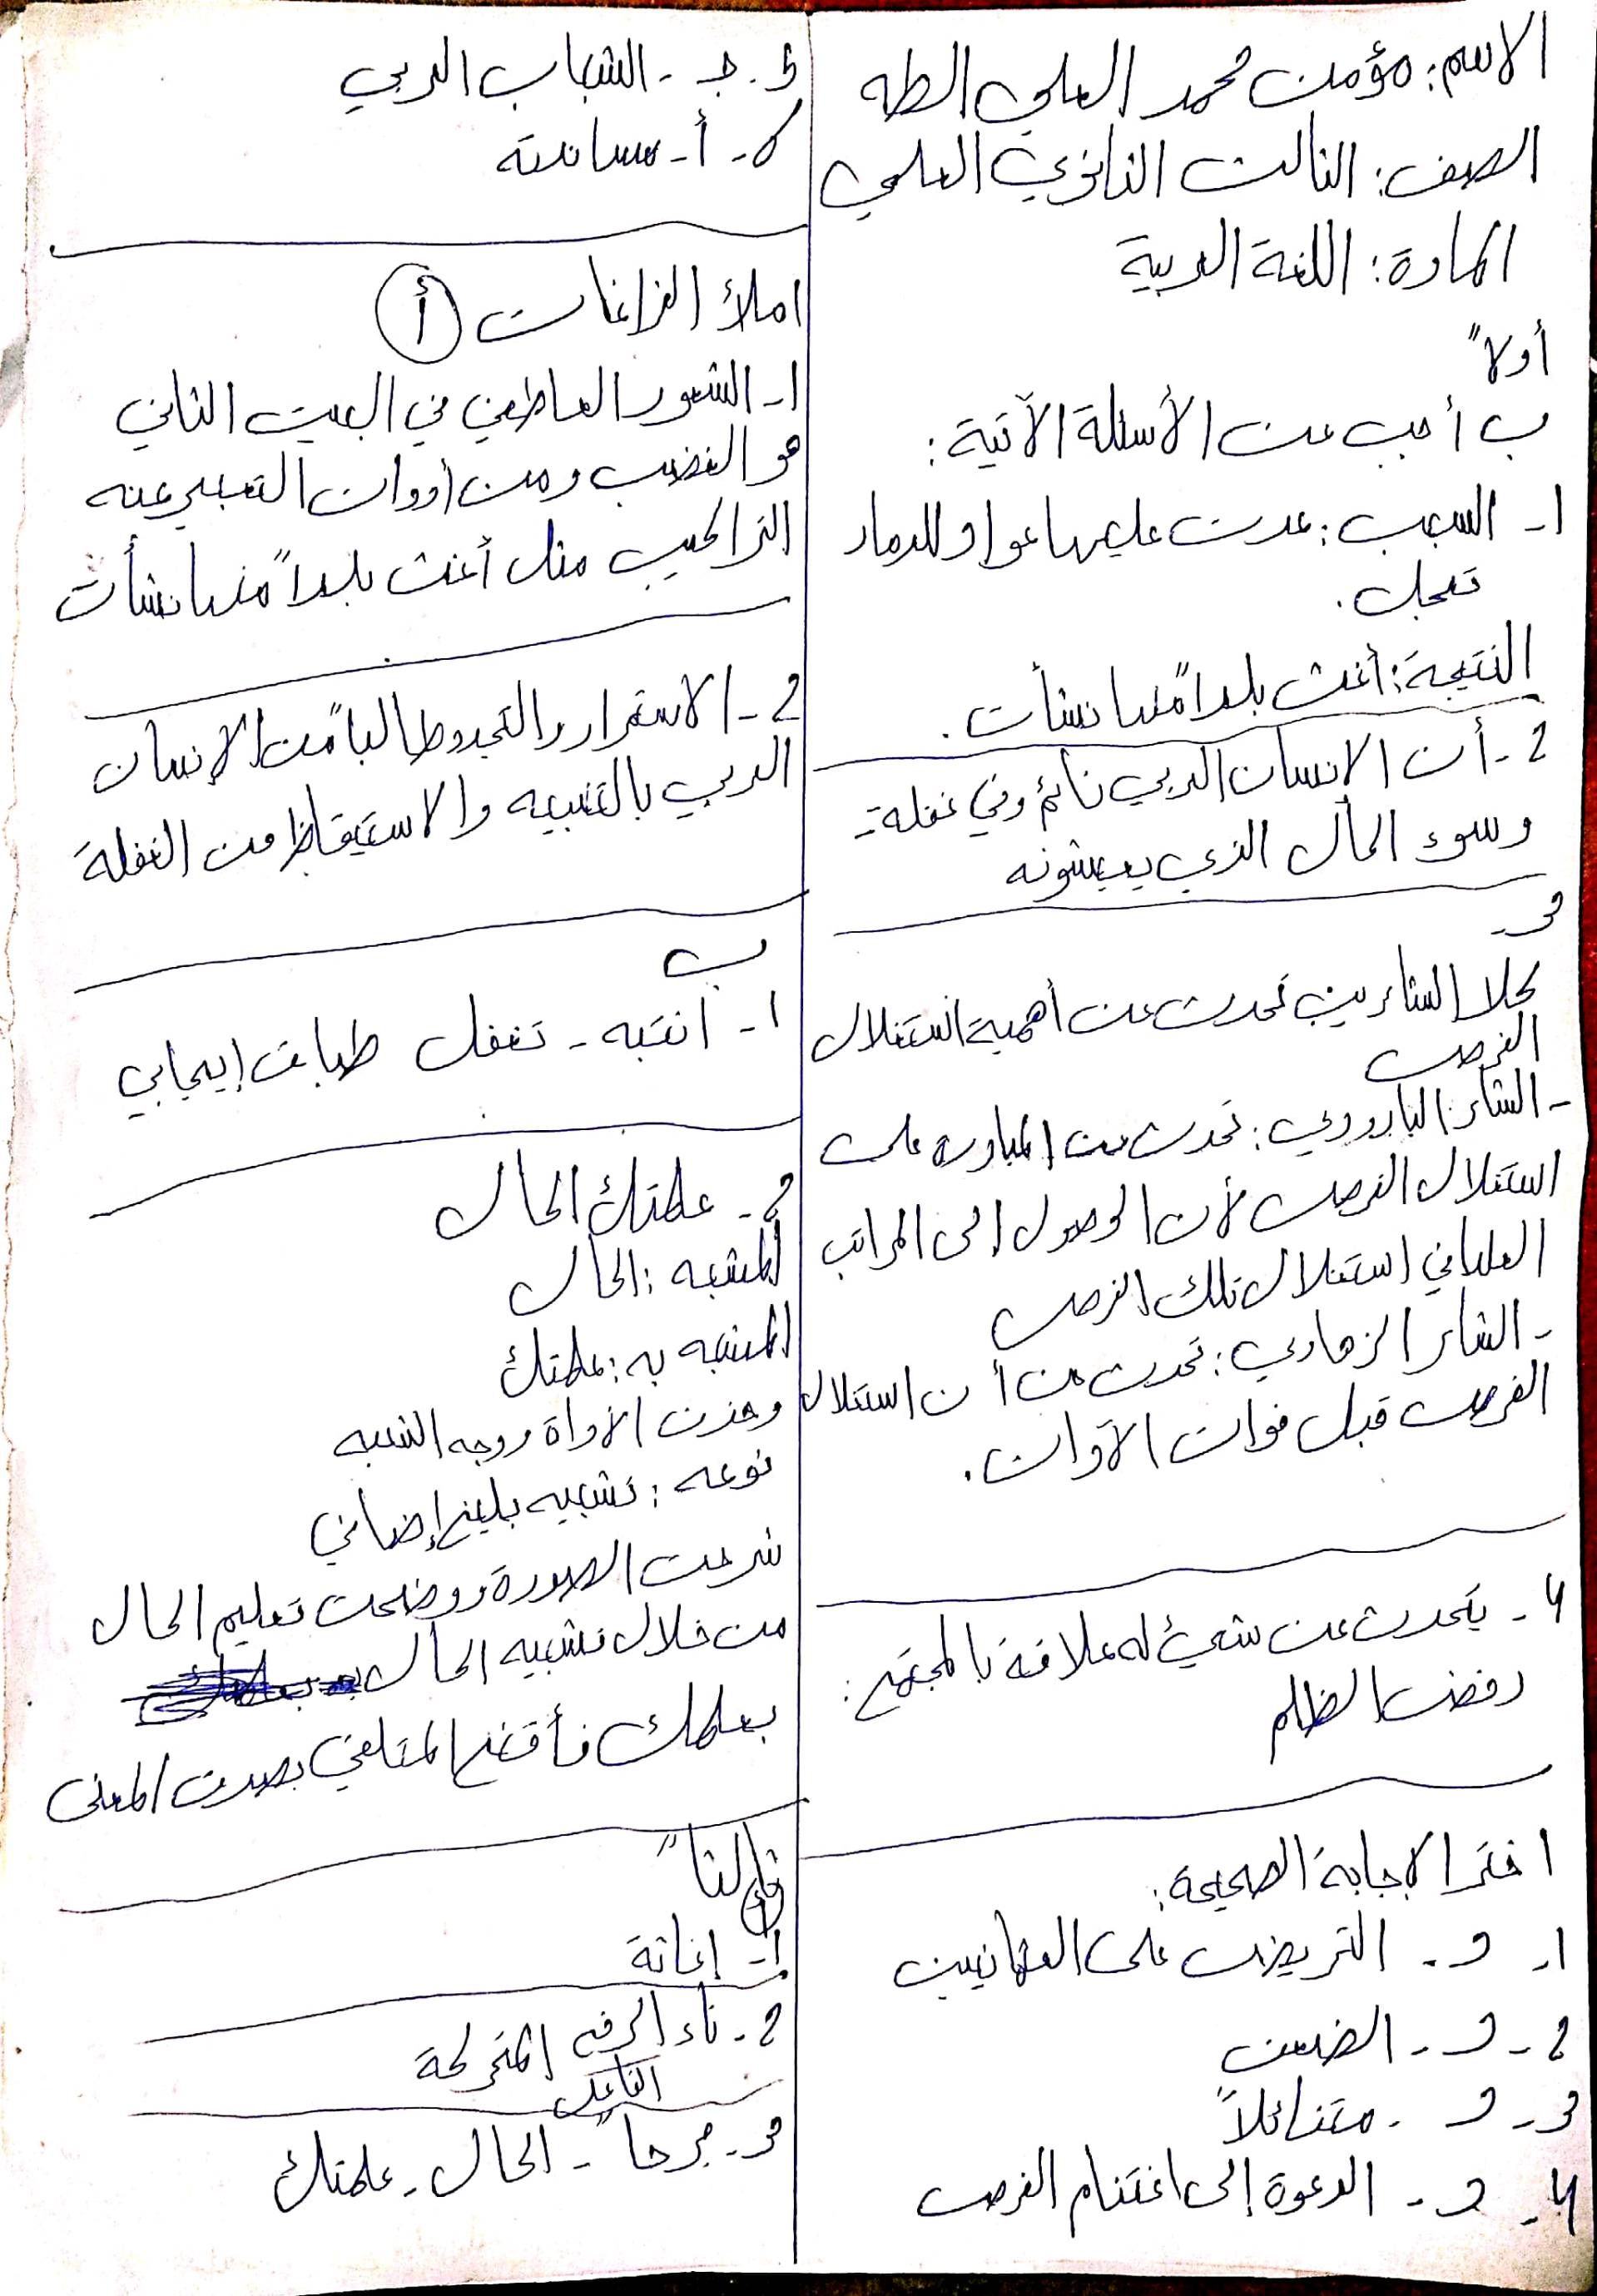 الاسم: مؤمن محمد العلي الطه
الصف: الثالث الثانوي العلمي
المادة: اللغة العربية
أولاً
ب أجب عن الأسئلة الآتية:
1- السبب: عدت عليها عواد للدمار
تعجل.
النتيجة: أغث بلداً منها نشأت.
2- أن الإنسان العربي نائم وفي غفلة -
وسوء الحال الذي يعيشونه
3-
كلا الشاعرين تحدث عن أهمية استغلال
الفرص
- الشاعر البارودي: تحدث عن المبادرة على
استغلال الفرص لأن الوصول إلى المراتب
العليا في استغلال تلك الفرص
- الشاعر الزهاوي: تحدث عن أن استغلال
الفرص قبل فوات الآوان.
4- يتحدث عن شيء له علاقة بالمجتمع:
رفض الظلم
اختر الإجابة الصحيحة:
1- د- التحريض على العثمانيين
2- د- الضعف
3- د- متفائلاً
4- د- الدعوة إلى اغتنام الفرص
5- جـ - الشباب العربي
6- أ- سياسته
املأ الفراغات أ
1- الشعور العاطفي في البيت الثاني
هو الغضب ومن أدوات التعبير عنه
التراكيب مثل أغث بلداً منها نشأت
2- الاستمرار والتجدد طالباً من الإنسان
العربي بالتنبيه والاستيقاظ من الغفلة
ب
1- انتبه - تغفل طباق إيجابي
2- علمتك الحال
المشبه: الحال
المشبه به: علمتك
وحذف الأداة ووجه الشبه
نوعه: تشبيه بليغ إضافي
شرحت الصورة ووضحت تعليم الحال
من خلال تشبيه الحال
بعلمك فأقنع المتلقي بصدق المعنى
ثالثاً
1- إغاثة
2- تاء الرفع المتحركة
الفاعل
3- مرحا - الحال - علمتك